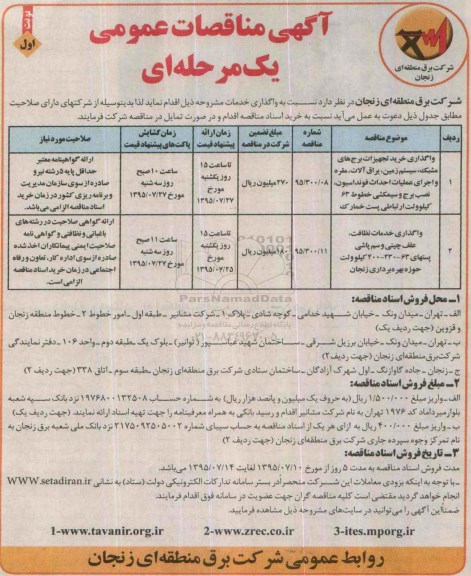 نوبت
اول
آگهی مناقصات عمومی
یک مرحله‌ای
شرکت برق منطقه‌ای
زنجان
شرکت برق منطقه‌ای زنجان در نظر دارد نسبت به واگذاری خدمات مشروحه ذیل اقدام نماید لذا بدینوسیله از شرکتهای دارای صلاحیت
مطابق جدول ذیل دعوت به عمل می‌آید نسبت به خرید اسناد مناقصه اقدام و در صورت تمایل در مناقصه شرکت فرمایند.
ردیف
موضوع مناقصه
شماره مناقصه
مبلغ تضمین شرکت در مناقصه
زمان ارائه پیشنهاد قیمت
زمان گشایش پاکت‌های پیشنهاد قیمت
صلاحیت مورد نیاز
۱
واگذاری خرید تجهیزات برج‌های
مشبکه، سیستم زمین، یراق آلات، مقره
و اجرای عملیات احداث فونداسیون،
نصب برج و سیمکشی خطوط ۶۳
کیلوولت ارتباطی پست خمارک
۹۵/۳۰۰/۰۸
۲۷۰ میلیون ریال
تا ساعت ۱۵
روز یکشنبه
مورخ
۱۳۹۵/۰۷/۲۷
ساعت ۱۰ صبح
روز سه شنبه
مورخ ۱۳۹۵/۰۷/۲۷
ارائه گواهینامه معتبر
حداقل پایه ۵ رشته نیرو
صادره از سوی سازمان مدیریت
و برنامه ریزی کشور در زمان خرید
اسناد مناقصه الزامی می‌باشد.
۲
واگذاری خدمات نظافت،
علف چینی و سم پاشی
پستهای ۶۳-۲۳۰-۴۰۰ کیلوولت
حوزه بهره برداری زنجان
۹۵/۳۰۰/۱۱
میلیون ریال
تا ساعت ۱۵
روز یکشنبه
مورخ
۱۳۹۵/۰۷/۲۵
ساعت ۱۱ صبح
روز سه شنبه
مورخ ۱۳۹۵/۰۷/۲۷
ارائه گواهی صلاحیت در رشته‌های
باغبانی و نظافتی و گواهی نامه
صلاحیت ایمنی پیمانکاران اخذ شده
صادره از سوی اداره کار، تعاون و رفاه
اجتماعی در زمان خرید اسناد مناقصه
الزامی است.
ParsNamadData
۰۲۱-۸۸۳۴۹۶۷۰
۱ـ محل فروش اسناد مناقصه:
الف - تهران - میدان ونک - خیابان شهید خدامی - کوچه شادی - پلاک ۱ - شرکت مشانیر - طبقه اول - امور خطوط ۲ - خطوط منطقه زنجان
و قزوین (جهت ردیف یک)
ب - تهران - میدان ونک - خیابان برزیل شرقی - ساختمان شهید عباسپور (توانیر) - بلوک یک - طبقه دوم - واحد ۱۰۶ - دفتر نمایندگی
شرکت برق منطقه‌ای زنجان (جهت ردیف ۲)
ج - زنجان - جاده گاوازنگ - اول شهرک آزادگان - ساختمان ستادی شرکت برق منطقه‌ای زنجان - طبقه سوم - اتاق ۳۳۸ (جهت ردیف ۲)
۲ـ مبلغ فروش اسناد مناقصه:
الف - واریز مبلغ ۱/۵۰۰/۰۰۰ ریال (به حروف یک میلیون و پانصد هزار ریال) به شماره حساب ۱۹۷۶۸۰۰۱۳۲۵۰۸ نزد بانک سپه شعبه
بلوار میرداماد کد ۱۹۷۶ تهران به نام شرکت مشانیر اقدام و رسید بانکی به همراه معرفینامه را جهت تهیه اسناد ارائه نمایند. (جهت ردیف یک)
ب - واریز مبلغ ۴۰۰/۰۰۰ ریال به ازای هر یک از اسناد مناقصه به حساب سیبای شماره ۲۱۷۵۰۹۲۵۰۵۰۰۲ نزد بانک ملی شعبه برق زنجان به
نام تمرکز وجوه سپرده جاری شرکت برق منطقه‌ای زنجان (جهت ردیف ۲)
۳ـ تاریخ فروش اسناد مناقصه:
مدت فروش اسناد مناقصه به مدت ۵ روز از مورخ ۱۳۹۵/۰۷/۱۰ لغایت ۱۳۹۵/۰۷/۱۴ می‌باشد.
- با توجه به اینکه بزودی معاملات این شرکت منحصراً در بستر سامانه تدارکات الکترونیکی دولت (ستاد) به نشانی WWW.setadiran.ir
انجام خواهد گردید مقتضی است کلیه مناقصه گران جهت عضویت در سامانه فوق اقدام فرمایند.
ضمناً این آگهی را می‌توانید در سایت‌های مشروحه ذیل مشاهده فرمایید.
1-www.tavanir.org.ir 2-www.zrec.co.ir 3-ites.mporg.ir
روابط عمومی شرکت برق منطقه‌ای زنجان